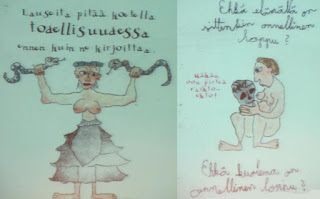 Lauseita pitää koetella
todellisuudessa
ennen kuin ne kirjoittaa.
Ehkä elämällä on
sittenkin onnellinen
loppu?
Ehkä kuolema on
onnellinen loppu?